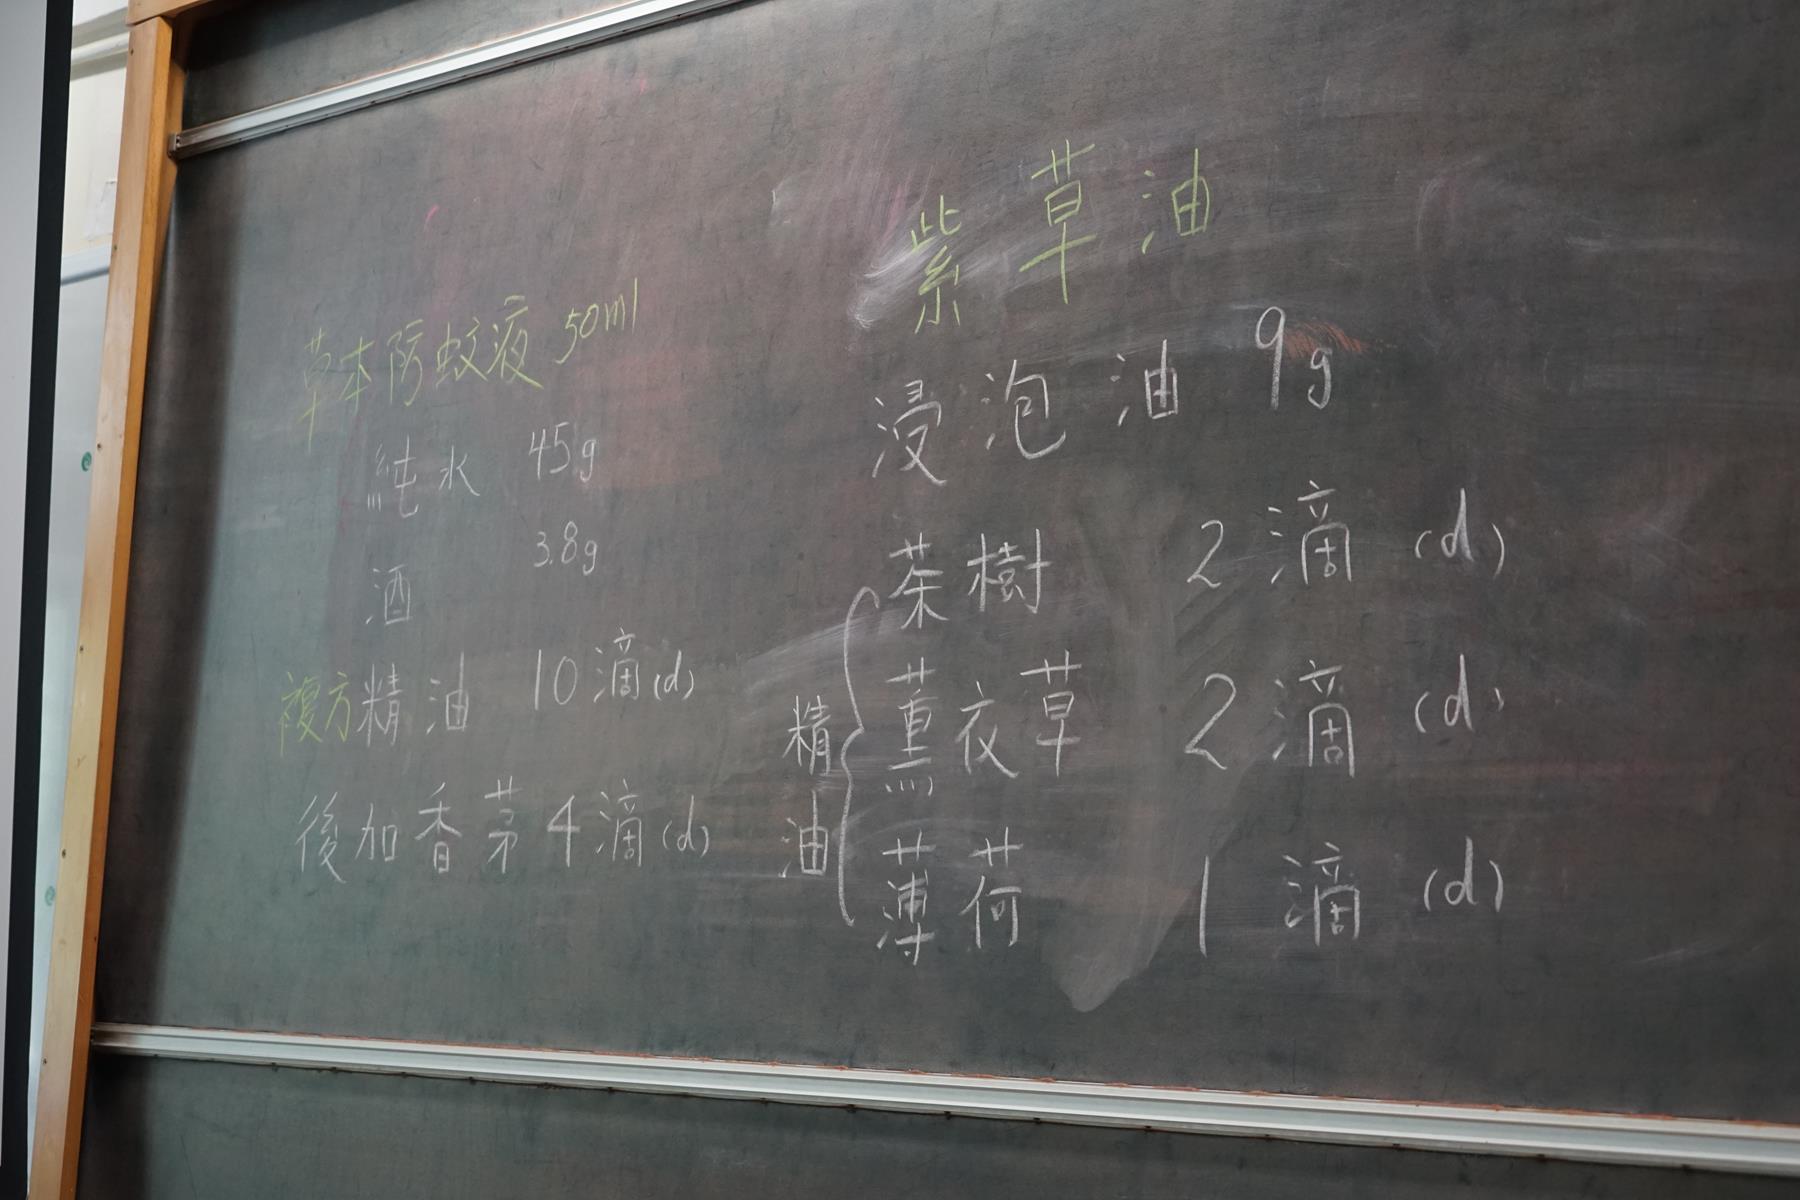 草本防蚊液 50ml
純水 45g
酒 3.8g
複方精油 10滴(d)
後加香茅4滴(d)
紫草油
浸泡油 9g
精油
茶樹 2滴 (d)
薰衣草 2滴 (d)
薄荷 1滴 (d)